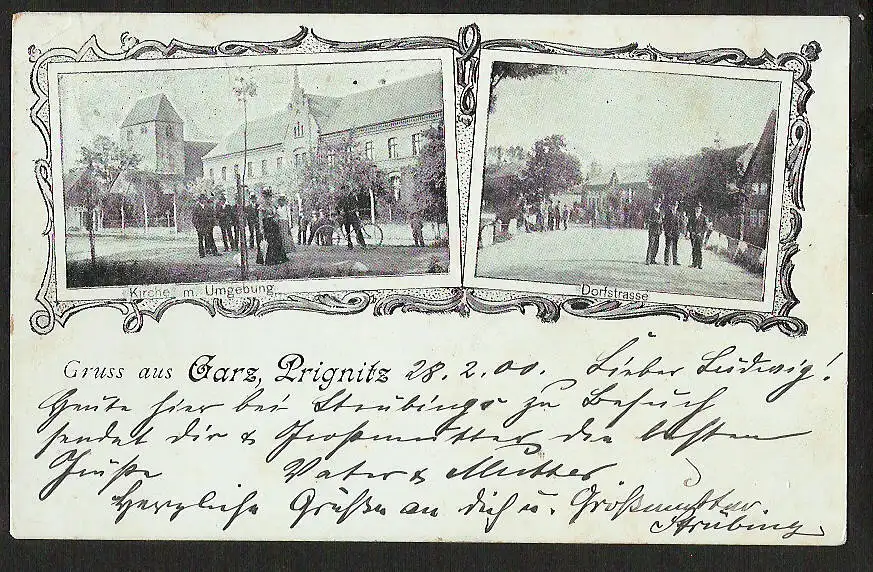 Kirche m. Umgebung
Dorfstrasse
Gruss aus Garz, Prignitz 28.2.00. Lieber Ludwig!
Heute hier bei Strübings zu Besuch
sendet dir & Großmutter die besten
Grüße Vater & Mutter
Herzliche Grüße an dich u. Großmutter.
Strübing